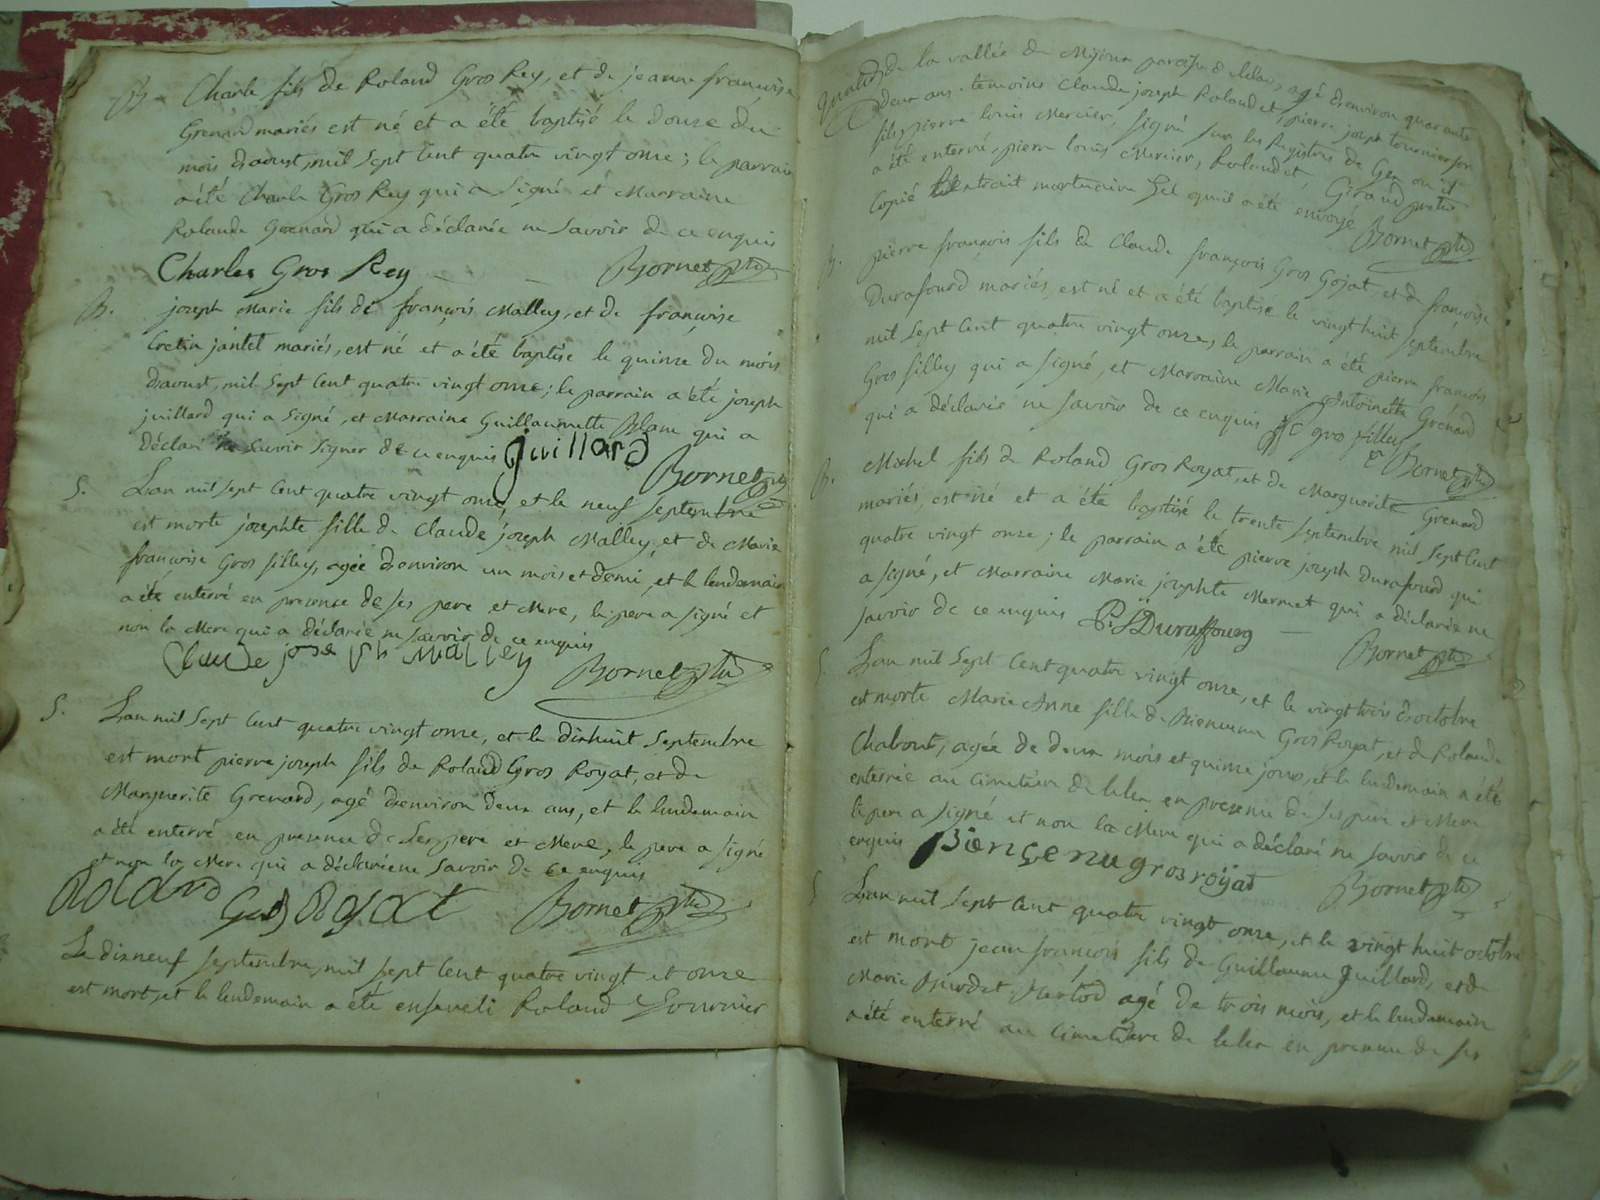 B. Charle fils de Roland Gros Rey, et de jeanne françoise
Grenard mariés est né et a été baptisé le douze du
mois daoust, mil sept cent quatre vingt onze ; le parrain
a été Charle Gros Rey qui a signé et Marraine
Rolande Grenard qui a déclarée ne savoir de ce enquis
Charles Gros Rey Bornet ptre
B. joseph Marie fils de françois Malley, et de françoise
Cretin jantet mariés, est né et a été baptise le quinze du mois
daoust, mil sept cent quatre vingt onze ; le parrain a été joseph
juillard qui a signé, et Marraine Guillaumette Blanc qui a
déclaré ne savoir signer de ce enquis Juillard
Bornet ptre
S. Lan mil sept cent quatre vingt onze, et le neuf septembre
est morte josephte fille de Claude joseph Malley, et de Marie
françoise Gros filley, agée denviron un mois et demi, et le lendemain
a été enterré en presence de ses pere et Mere, le pere a signé et
non la Mere qui a déclarée ne savoir de ce enquis
Claude joseph Malley Bornet ptre
S. Lan mil sept cent quatre vingt onze, et le dixhuit septembre
est mort pierre joseph fils de Roland Gros Royat, et de
Marguerite Grenard, agé denviron deux ans, et le lendemain
a été enterré en presence de ses pere et Mere, le pere a signé
et non la Mere qui a déclarée ne savoir de ce enquis
Roland Gros Royat Bornet ptre
Le dixneuf septembre, mil sept cent quatre vingt et onze
est mort, et le lendemain a été enseveli Roland Tournier
de la vallée de Mijoux paroisse de lelex, agé denviron quarante
deux ans. temoins Claude joseph Roland et, pierre joseph tournier son
fils, pierre louis Mercier, signé sur les Registres de Gex ou il
a été enterré, pierre louis Mercier, Roland et, Girand pretre
Copié lextrait mortuaire tel quil a été envoyé Bornet ptre
B. pierre françois fils de Claude françois Gros Gojat, et de françoise
Durafourd mariés, est né et a été baptisé le vingthuit septembre
mil sept cent quatre vingt onze, le parrain a été pierre françois
Gros filley qui a signé, et Marraine Marie Antoinette Grénard
qui a déclarée ne savoir de ce enquis gros filley
Bornet ptre
B. Michel fils de Roland Gros Royat, et de Marguerite Grenard
mariés, est né et a été baptisé le trente septembre mil sept cent
quatre vingt onze ; le parrain a été pierre joseph Durafourd qui
a signé, et Marraine Marie josephte Mermet qui a déclarée ne
savoir de ce enquis P. J Duraffourg Bornet ptre
S. Lan mil sept cent quatre vingt onze, et le vingt trois doctobre
est morte Marie Anne fille de Bienvenu Gros Royat, et de Rolande
Chabout, agée de deux mois et quinze jours, et le lendemain a été
enterrée au cimetiere de lelex en presence de ses pere et Mere
le pere a signé et non la Mere qui a déclaré ne savoir de ce
enquis Biençenu gros roÿat Bornet ptre
S. Lan mil sept cent quatre vingt onze, et le vingt huit octobre
est mort jean françois fils de Guillaume Juillard, et de
Marie agé de trois mois, et le lendemain
a été enterré au cimetiere de lelex en presence de ses